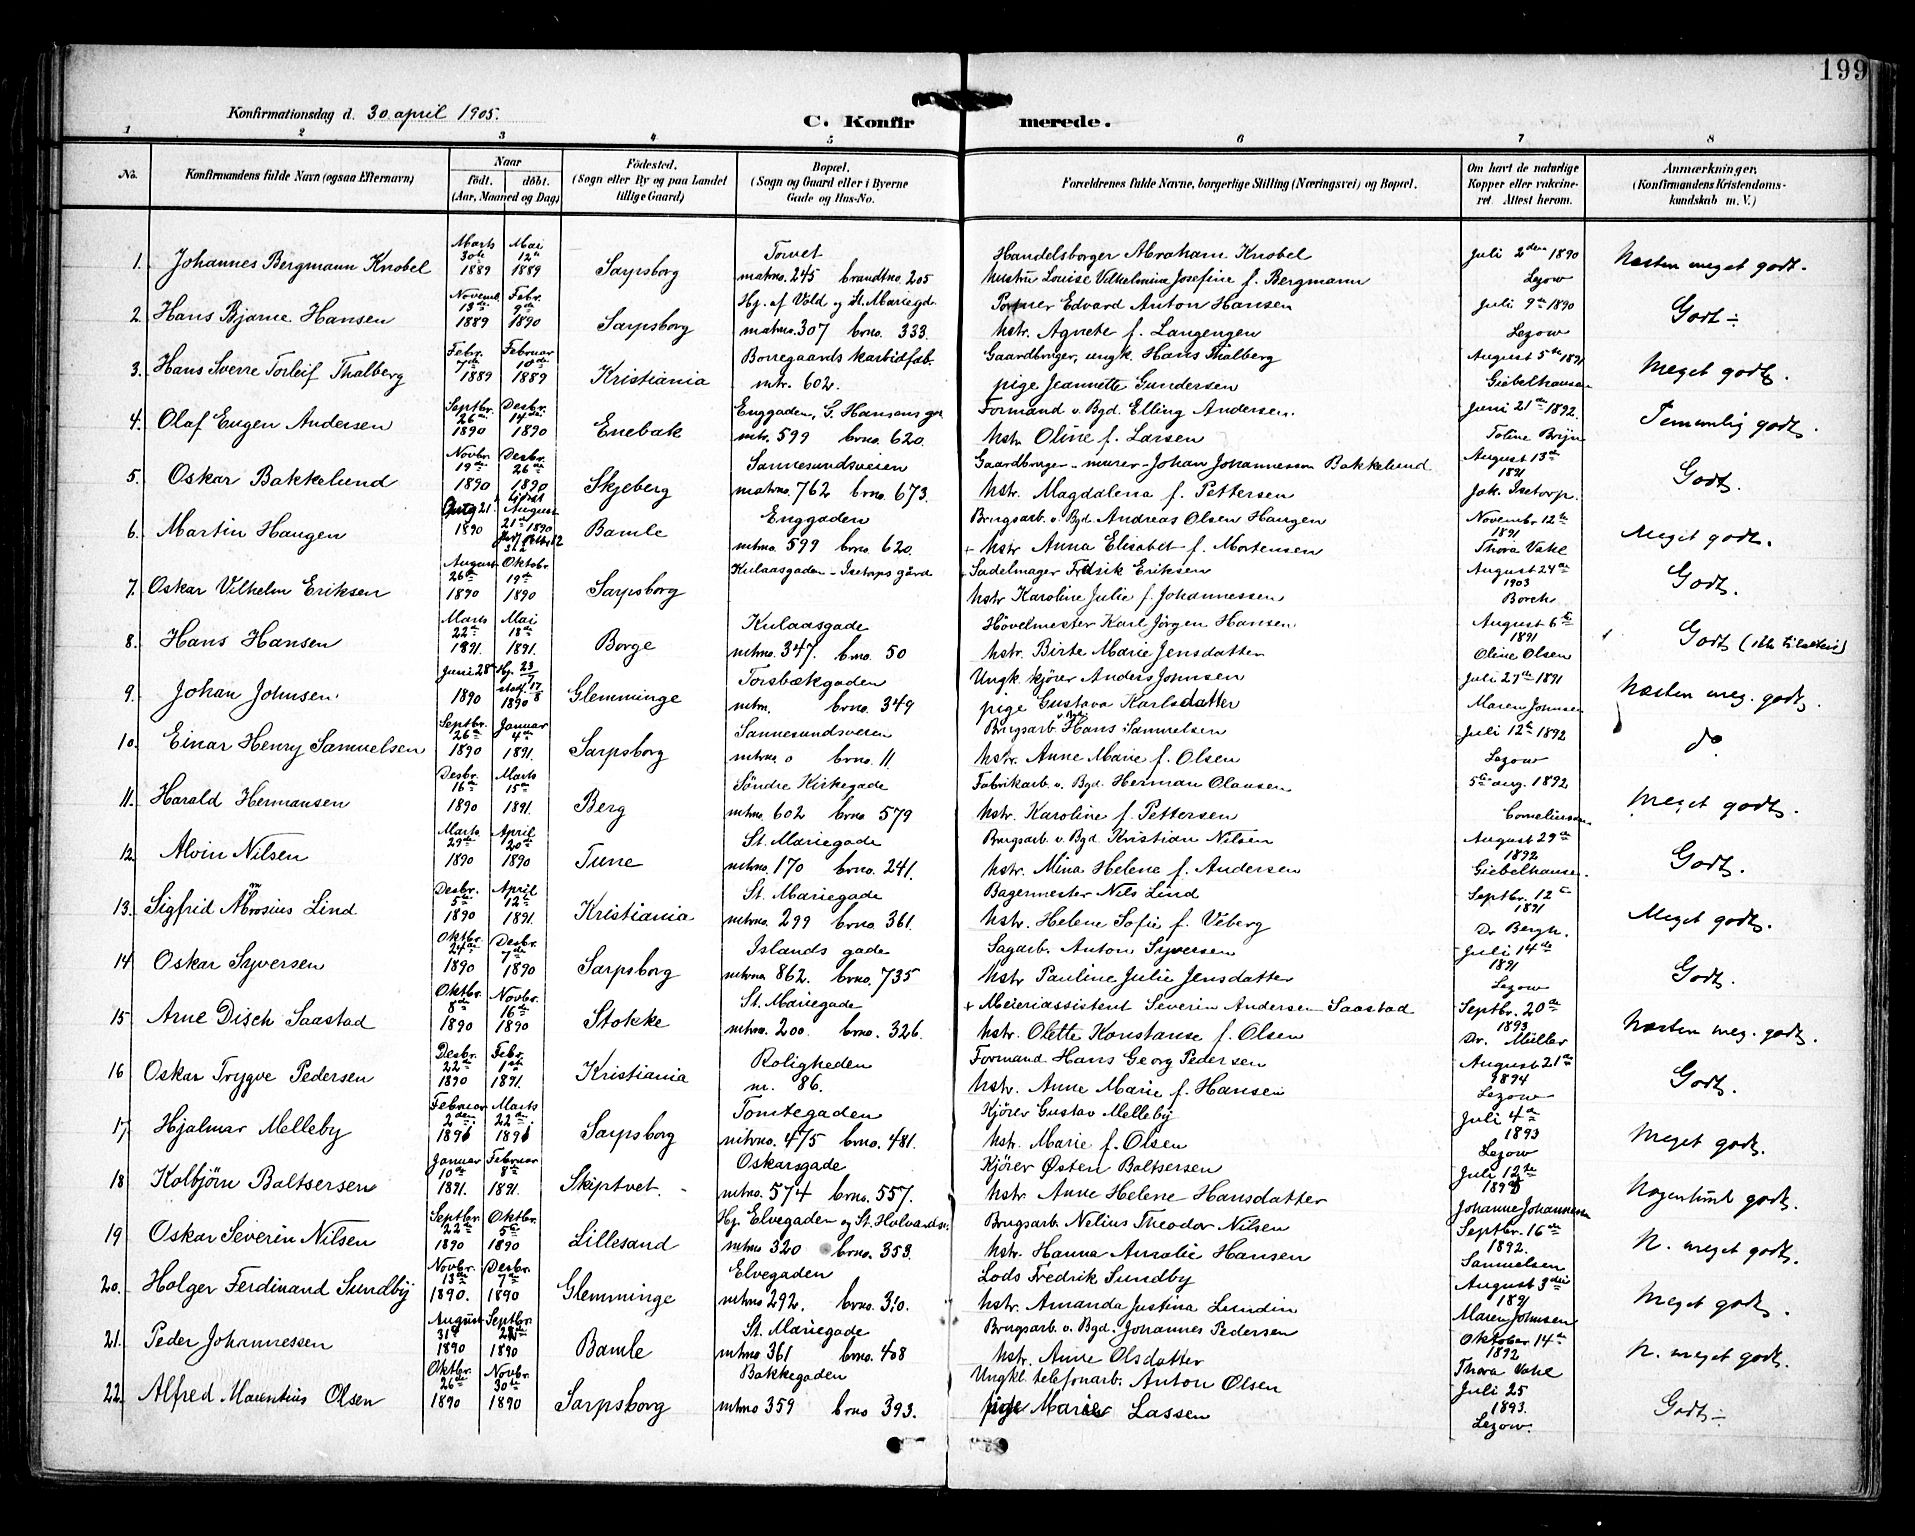 199
Konfirmationsdag d. 30 april 1905.
C. Konfirmerede.
1 2 3 4 5 6 7 8
No.
Konfirmandens fulde Navn (ogsaa Efternavn)
Naar
födt. döbt.
(Aar, Maaned og Dag)
Födested.
(Sogn eller By og paa Landet
tillige Gaard)
Bopæl.
(Sogn og Gaard eller i Byerne
Gade og Hus-No.
Forældrenes fulde Navne, borgerlige Stilling (Næringsvei) og Bopæl.
Om havt de naturlige
Kopper eller vakcine-
ret. Attest herom.
Anmærkninger.
(Konfirmandens Kristendoms-
kundskab m. V.)
Marts Mai Torvet Handelsborger Abraham Knobel Juli 2den 1890
1. Johannes Bergmann Knobel 30te 12te 1889 1889 Sarpsborg matrno. 245 brandtno. 205 hustru Louise Vilhelmina Josefine f. Bergmann Lezow Næsten meget godt.
Novemb. Febr. Hj. af Vold og St. Mariegd. Portner Edvard Anton Hansen Juli 9de 1890
2. Hans Bjarne Hansen 13de 9de 1889 1890 Sarpsborg matrno. 307 brno. 333. hstr. Agnete f. Langengen Lezow Godt ÷
Febr. Februar Borregaards karbidfab. Gaardbruger, ungk. Hans Thalberg August 5te 1891
3. Hans Sverre Torleif Thalberg 7de 10de 1889 1889 Kristiania mtr. 602. pige Jeannette Gundersen Giebelhausen Meget godt.
Septbr. Desbr. Enggaden, G. Hansens gr. Formand v. Bgd. Elling Andersen. Juni 21de 1892.
4. Olaf Eugen Andersen 26de 14de 1890 1890 Enebak mtr. 599 brno. 620. hstr. Oline f. Larsen Toline Bryn Temmelig godt.
Novbr. Desbr. Sannesundsveien Gaardbruger - murer - Johan Johannessen Bakkelund August 13de 1891
5. Oskar Bakkelund 19de 26de 1890 1890 Skjeberg matrno. 762 brno. 673. hstr. Magdalena f. Pettersen Jak. Isetorp. Godt.
Aug 21. August Enggaden Brugsarb. v. Bgd. Andreas Olsen Haugen Novembr 12te 1891
6. Martin Haugen 1890 21de 1890 Bamle mtrno. 599 brno. 620. + hstr Anna Elisabet f. Mortensen Thora Vahl Meget godt.
August Oktobr Kulaasgaden - Isetorps gård Sadelmager Fredrik Eriksen August 24de 1903
7. Oskar Vilhelm Eriksen 26de 19de 1890 1890 Sarpsborg hstr Karoline Julie f. Johannessen Borch Godt.
Marts Mai Kulaasgade Hövelmester Karl Jörgen Hansen. August 6te 1891
8. Hans Hansen 22de 18de 1891. 1891. Borge mtrno. 347. brno. 50 hstr. Birte Marie Jensdatter Oline Olsen Godt
Juni 28de Hj. 23/7 Torsbækgaden Ungk. kjörer Anders Johnsen Juli 27de 1891
9. Johan Johnsen. 1890 stadf. 17/8 1890 Glemminge mtrn. brno. 349 pige Gustava Karlsdatter Maren Johnsen Næsten meg. godt.
Septbr. Januar Sannesundsveien Brugsarb. v. Bgd. Hans Samuelsen Juli 12te 1892
10. Einar Henry Samuelsen 26de 4de 1890 1891. Sarpsborg mtrno. 0 brno. 11. hstr. Anne Marie f. Olsen Lezow do
Desbr. Marts Söndre Kirkegade Fabrikarb. v. Bgd. Herman Olausen 5te aug. 1892
11. Harald Hermansen 16de 15de 1890 1891. Berg mtrno. 602 brno 579 hstr. Karoline f. Pettersen Corneliussen Meget godt.
Marts April St. Mariegade Brugsarb. v. Bgd. Kristian Nilsen August 29de 1892
12. Alvin Nilsen 29de 20de 1890 1890 Tune mtrno. 170 brno. 241. hstr. Mina Helene f. Andersen Giebelhausen Godt.
Desbr. April St. Mariegade Bagermester Nils Lind Septbr. 12te 1891
13. Sigfrid Ambrosius Lind 5te 12te 1890 1891. Kristiania mtrno. 299 brno. 361. hstr. Helene Sofie f. Viberg Dr Bergh. Meget godt.
Oktbr. Desbr. Islands gade Sagarb. Anton Syversen Juli 14de 1891
14 Oskar Syversen 24de 7de 1890 1890 Sarpsborg mtrno 862 brno. 735 hstr Pauline Julie Jensdatter Lezow Godt.
Oktbr. Novbr. St. Mariegade + Meieriassistent Severin Andersen Saastad Septbr. 20de 1893
15 Arne Disch Saastad 8de 16de 1890 1890 Stokke mtrno. 200 brno. 326. hstr. Olette Konstanse f. Olsen Dr. Müller Næsten meg. godt.
Desbr. Febr. Roligheden Formand Hans Georg Pedersen August 21de 1894
16 Oskar Trygve Pedersen 22de 1ste 1890 1891. Kristiania nr. 86. hstr. Anne Marie f. Hansen Lezow Godt.
Februar Marts Tomtegaden Kjörer Gustav Melleby Juli 4de 1893
17. Hjalmar Melleby 2den 22de 1891 1891 Sarpsborg mtrno. 475 brno. 481. hstr. Marie f. Olsen Lezow Meget godt.
Januar Februar Oskarsgade Kjörer Østen Baltsersen Juli 12te
18 Kolbjörn Baltsersen 10de 8de 1891. 1891. Skiptvet. mtrno. 574 brno. 557. hstr Anne Helene Hansdatter Johanne Johannessen Nogenlunde godt.
Septbr. Oktbr. Hj. Elvegaden og St. Halvardsv. Brugsarb. Nelius Theodor Nilsen Septbr. 16de 1892.
19 Oskar Severin Nilsen 22de 5te 1890 1890 Lillesand mtrno 320 brno. 353. hstr. Hanna Amalie Hansen Samuelsen N. meget godt.
Novbr. Desbr. Elvegaden Lods Fredrik Sundby August 3die 1891
20. Holger Ferdinand Sundby 13de 7de 1890. 1890 Glemminge mtrno 292. brno. 310. hstr. Amanda Justina Lundin Maren Johnsen Meget godt.
August Septbr. St. Mariegade Brugsarb. v. Bgd. Johannes Pedersen Oktober 14de 1892
21. Peder Johannessen 31te 1890 1890 Bamle mtrno 361 brno. 408 hstr. Anne Olsdatter Thora Vahl N. meget godt.
Oktbr. Novbr. Bakkegaden Ungkl. telefonarb. Anton Olsen Juli 25 1893.
22. Alfred Marentius Olsen 26de 30te 1890 1890 Sarpsborg mtrno 359 brno 393. pige Marie Lassen Lezow. Godt ÷